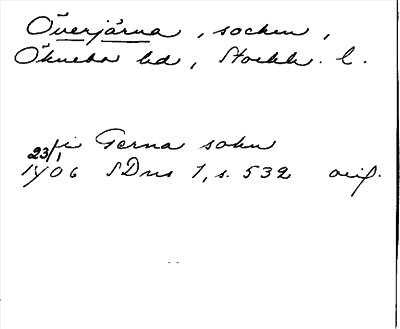 Överjärna, socken,
Öknebo hd, Stockh. l.
i Gerna sokn
23/1 1406 SDns 1, s. 532 orig.